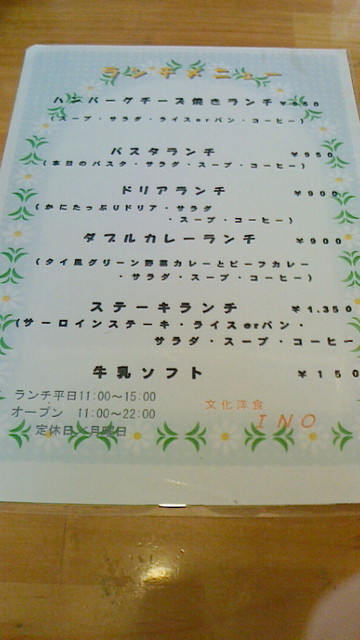 ランチメニュー
ハンバーグチーズ焼きランチ
(スープ・サラダ・ライスorパン・コーヒー)
パスタランチ ￥950
(本日のパスタ・サラダ・スープ・コーヒー)
ドリアランチ ￥900
(かにたっぷりドリア・サラダ
・スープ・コーヒー)
ダブルカレーランチ ￥900
(タイ風グリーン野菜カレーとビーフカレー
・サラダ・スープ・コーヒー)
ステーキランチ ￥1.350
(サーロインステーキ・ライスorパン・
サラダ・スープ・コーヒー
牛乳ソフト ￥150
ランチ平日11:00～15:00
オープン 11:00～22:00
定休日 月曜日
文化洋食
INO